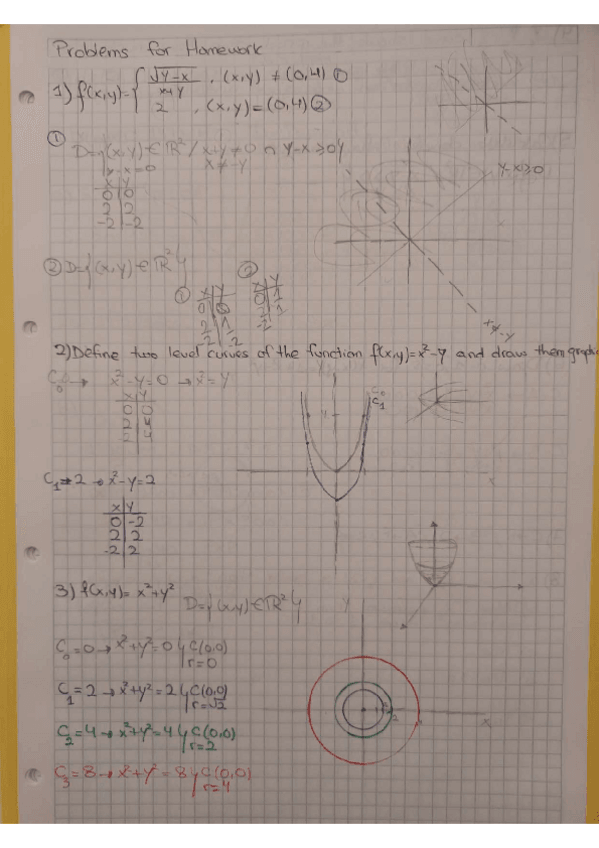 Problems for Homework
1) f(x,y)= { √(y-x) / (x+y) , (x,y) ≠ (0,4) ①
2 , (x,y)=(0,4) ②
① D={(x,y) ∈ ℝ² / x+y ≠ 0 ∩ y-x ≥ 0}
y-x=0 x ≠ -y
x | y
0 | 0
2 | 2
-2 | -2
y-x≥0
② D={(x,y) ∈ ℝ²}
① x | y
② x | y
2) Define two level curves of the function f(x,y)=x²-y and draw them
C₀ → x²-y=0 → x²=y
x | y
0 | 0
2 | 4
-2 | 4
C₁
C₁=2 → x²-y=2
x | y
0 | -2
2 | 2
-2 | 2
3) f(x,y)= x²+y² D={(x,y) ∈ ℝ²}
y
C₀=0 → x²+y²=0 { C(0,0)
r=0
C₁=2 → x²+y²=2 { C(0,0)
r=√2
C₂=4 → x²+y²=4 { C(0,0)
r=2
C₃=8 → x²+y²=8 { C(0,0)
r=4
x